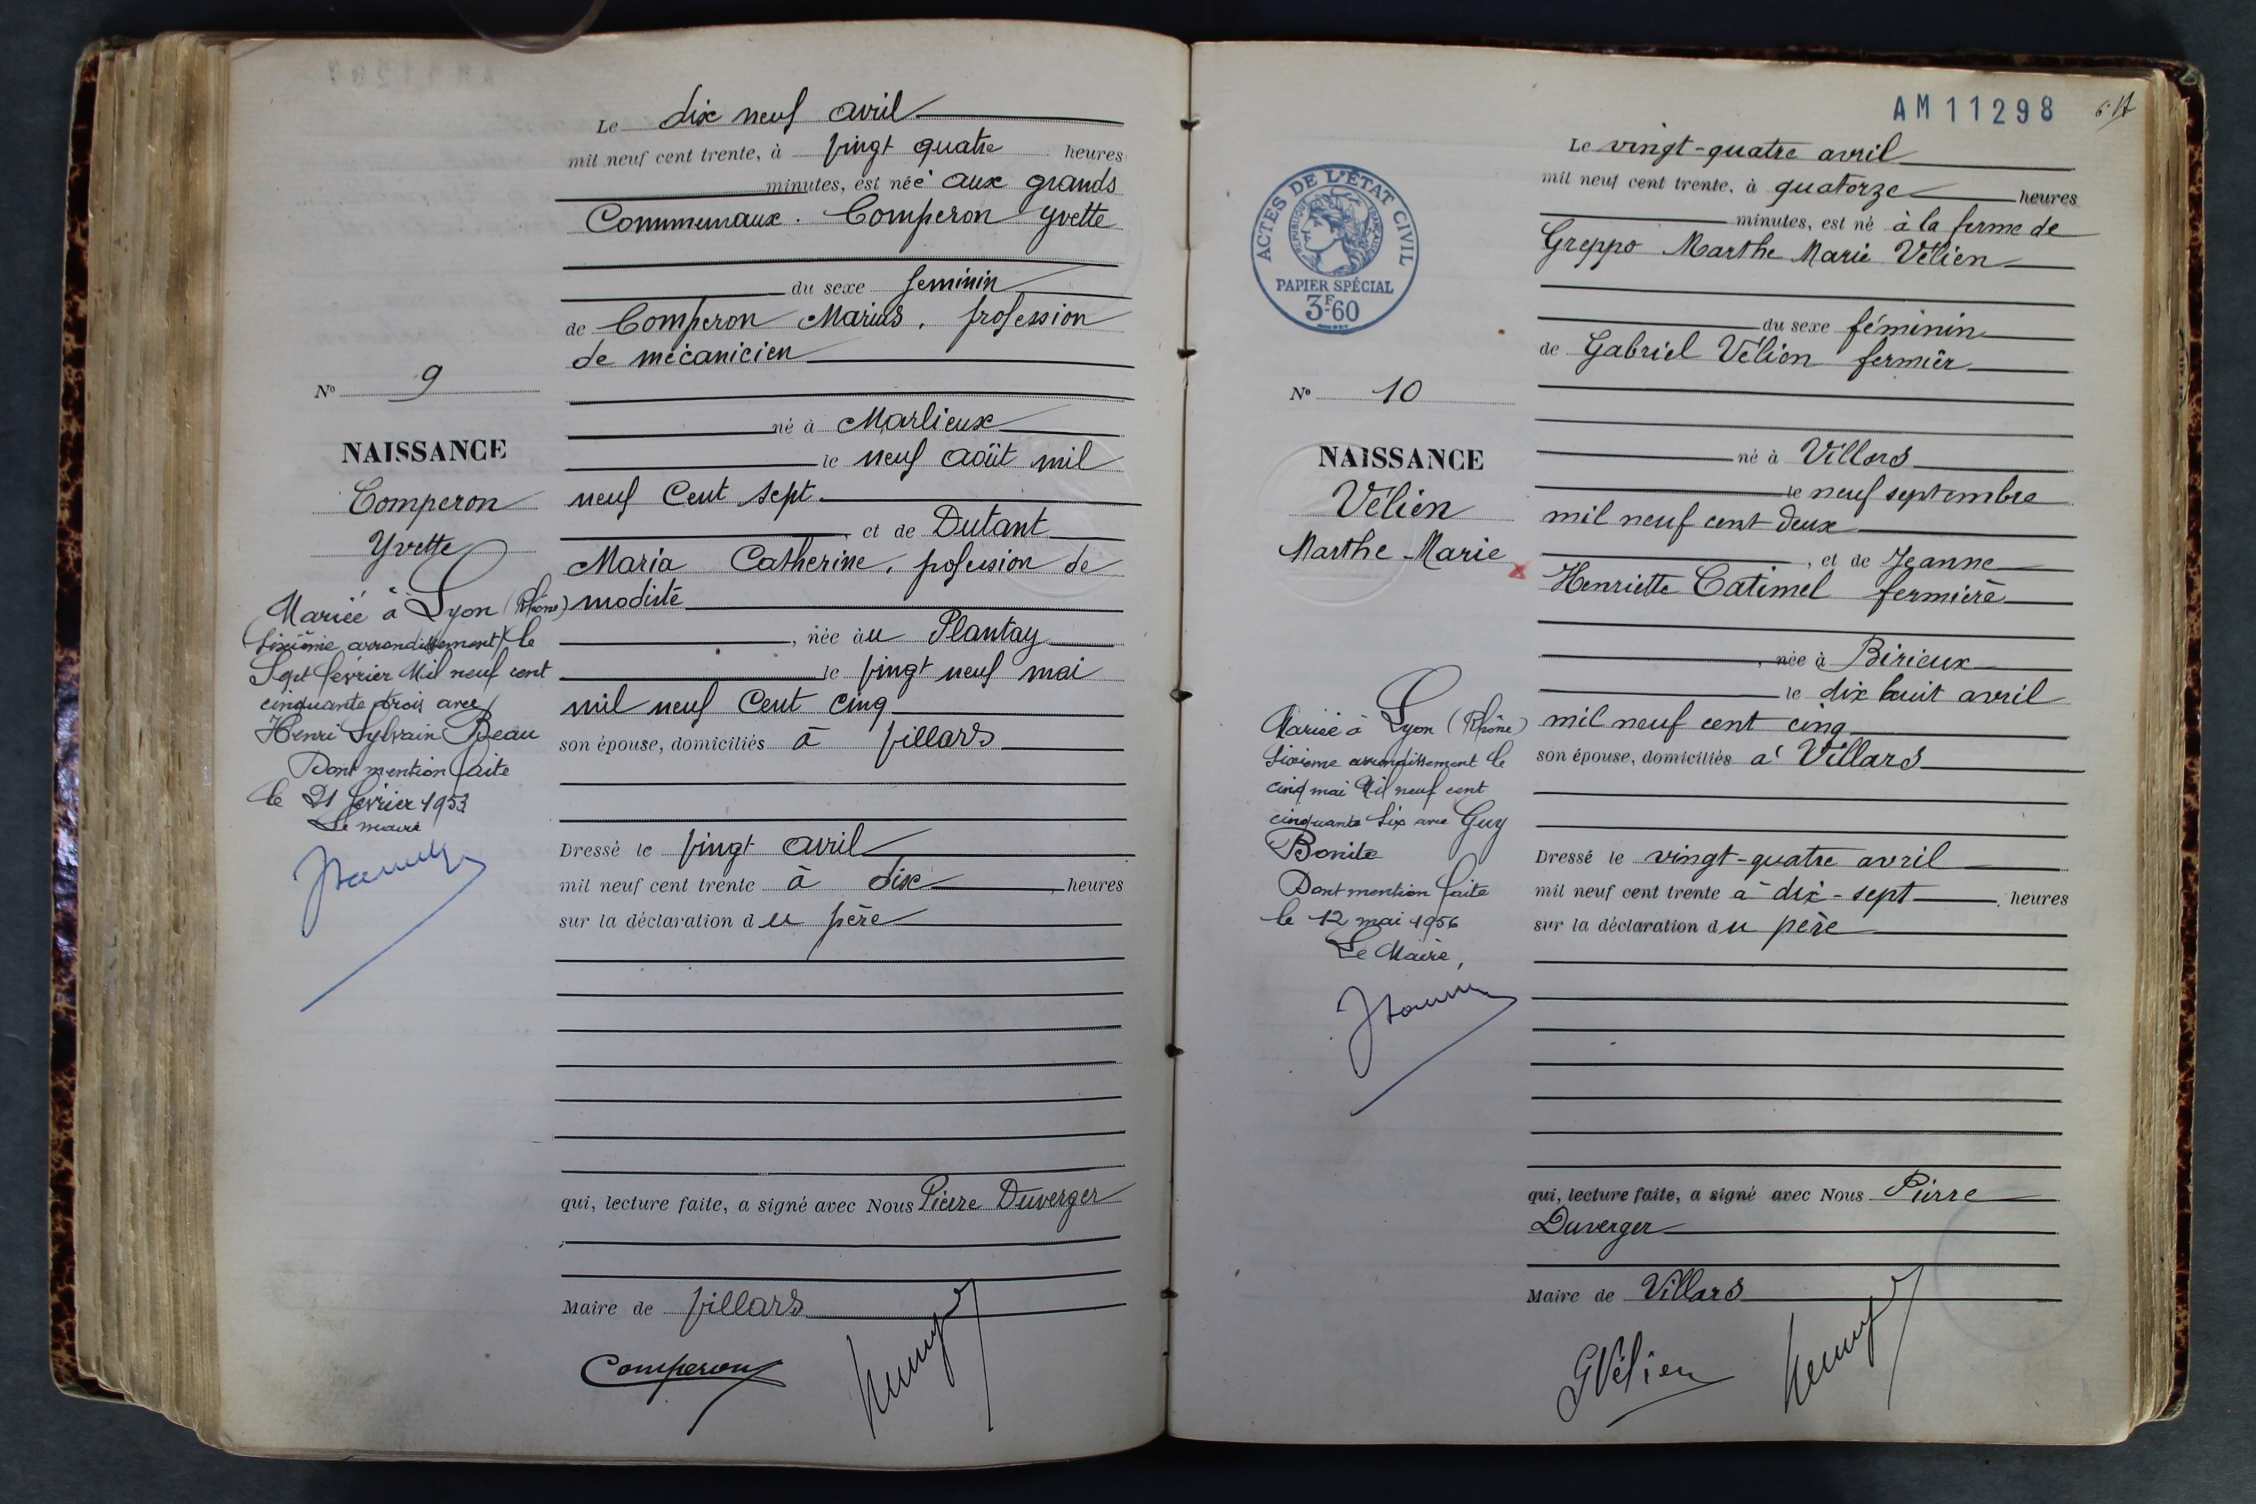 Le dix neuf avril
mil neuf cent trente, à vingt quatre heures
minutes, est néé aux grands
Communaux. Comperon Yvette
du sexe feminin
de Comperon Marius, profession
de mécanicien
né à Marlieux
le neuf août mil
neuf Cent sept
et de Dutant
Maria Catherine, profession de
modiste
, née àu Plantay
le vingt neuf mai
mil neuf Cent cinq
son épouse, domiciliés à Villars
Dressé le vingt avril
mil neuf cent trente à dix, heures
sur la déclaration du père
qui, lecture faite, a signé avec Nous Pierre Duverger
Maire de Villars
Comperon
No 9
NAISSANCE
Comperon
Yvette
Mariée à Lyon (Rhône)
(sixième arrondissement) le
Sept février Mil neuf cent
cinquante trois avec
Henri Sylvain Beau
Dont mention faite
le 21 février 1953
Le maire
AM11298
Le vingt-quatre avril
mil neuf cent trente, à quatorze heures
minutes, est né à la ferme de
Greppo Marthe Marie Vélien
du sexe féminin
de Gabriel Vélien fermier
né à Villars
le neuf septembre
mil neuf cent deux
, et de Jeanne
Henriette Catimel fermière
, née à Birieux
le dix huit avril
mil neuf cent cinq
son épouse, domiciliés à Villars
Dressé le vingt-quatre avril
mil neuf cent trente à dix-sept, heures
sur la déclaration du père
qui, lecture faite, a signé avec Nous Pierre
Duverger
Maire de Villars
GVélien
ACTES DE L'ÉTAT CIVIL
RÉPUBLIQUE FRANÇAISE
PAPIER SPÉCIAL
3F60
No 10
NAISSANCE
Vélien
Marthe Marie
Mariée à Lyon (Rhône)
sixième arrondissement le
cinq mai Mil neuf cent
cinquante six avec Guy
Bonite
Dont mention faite
le 12 mai 1956
Le Maire,